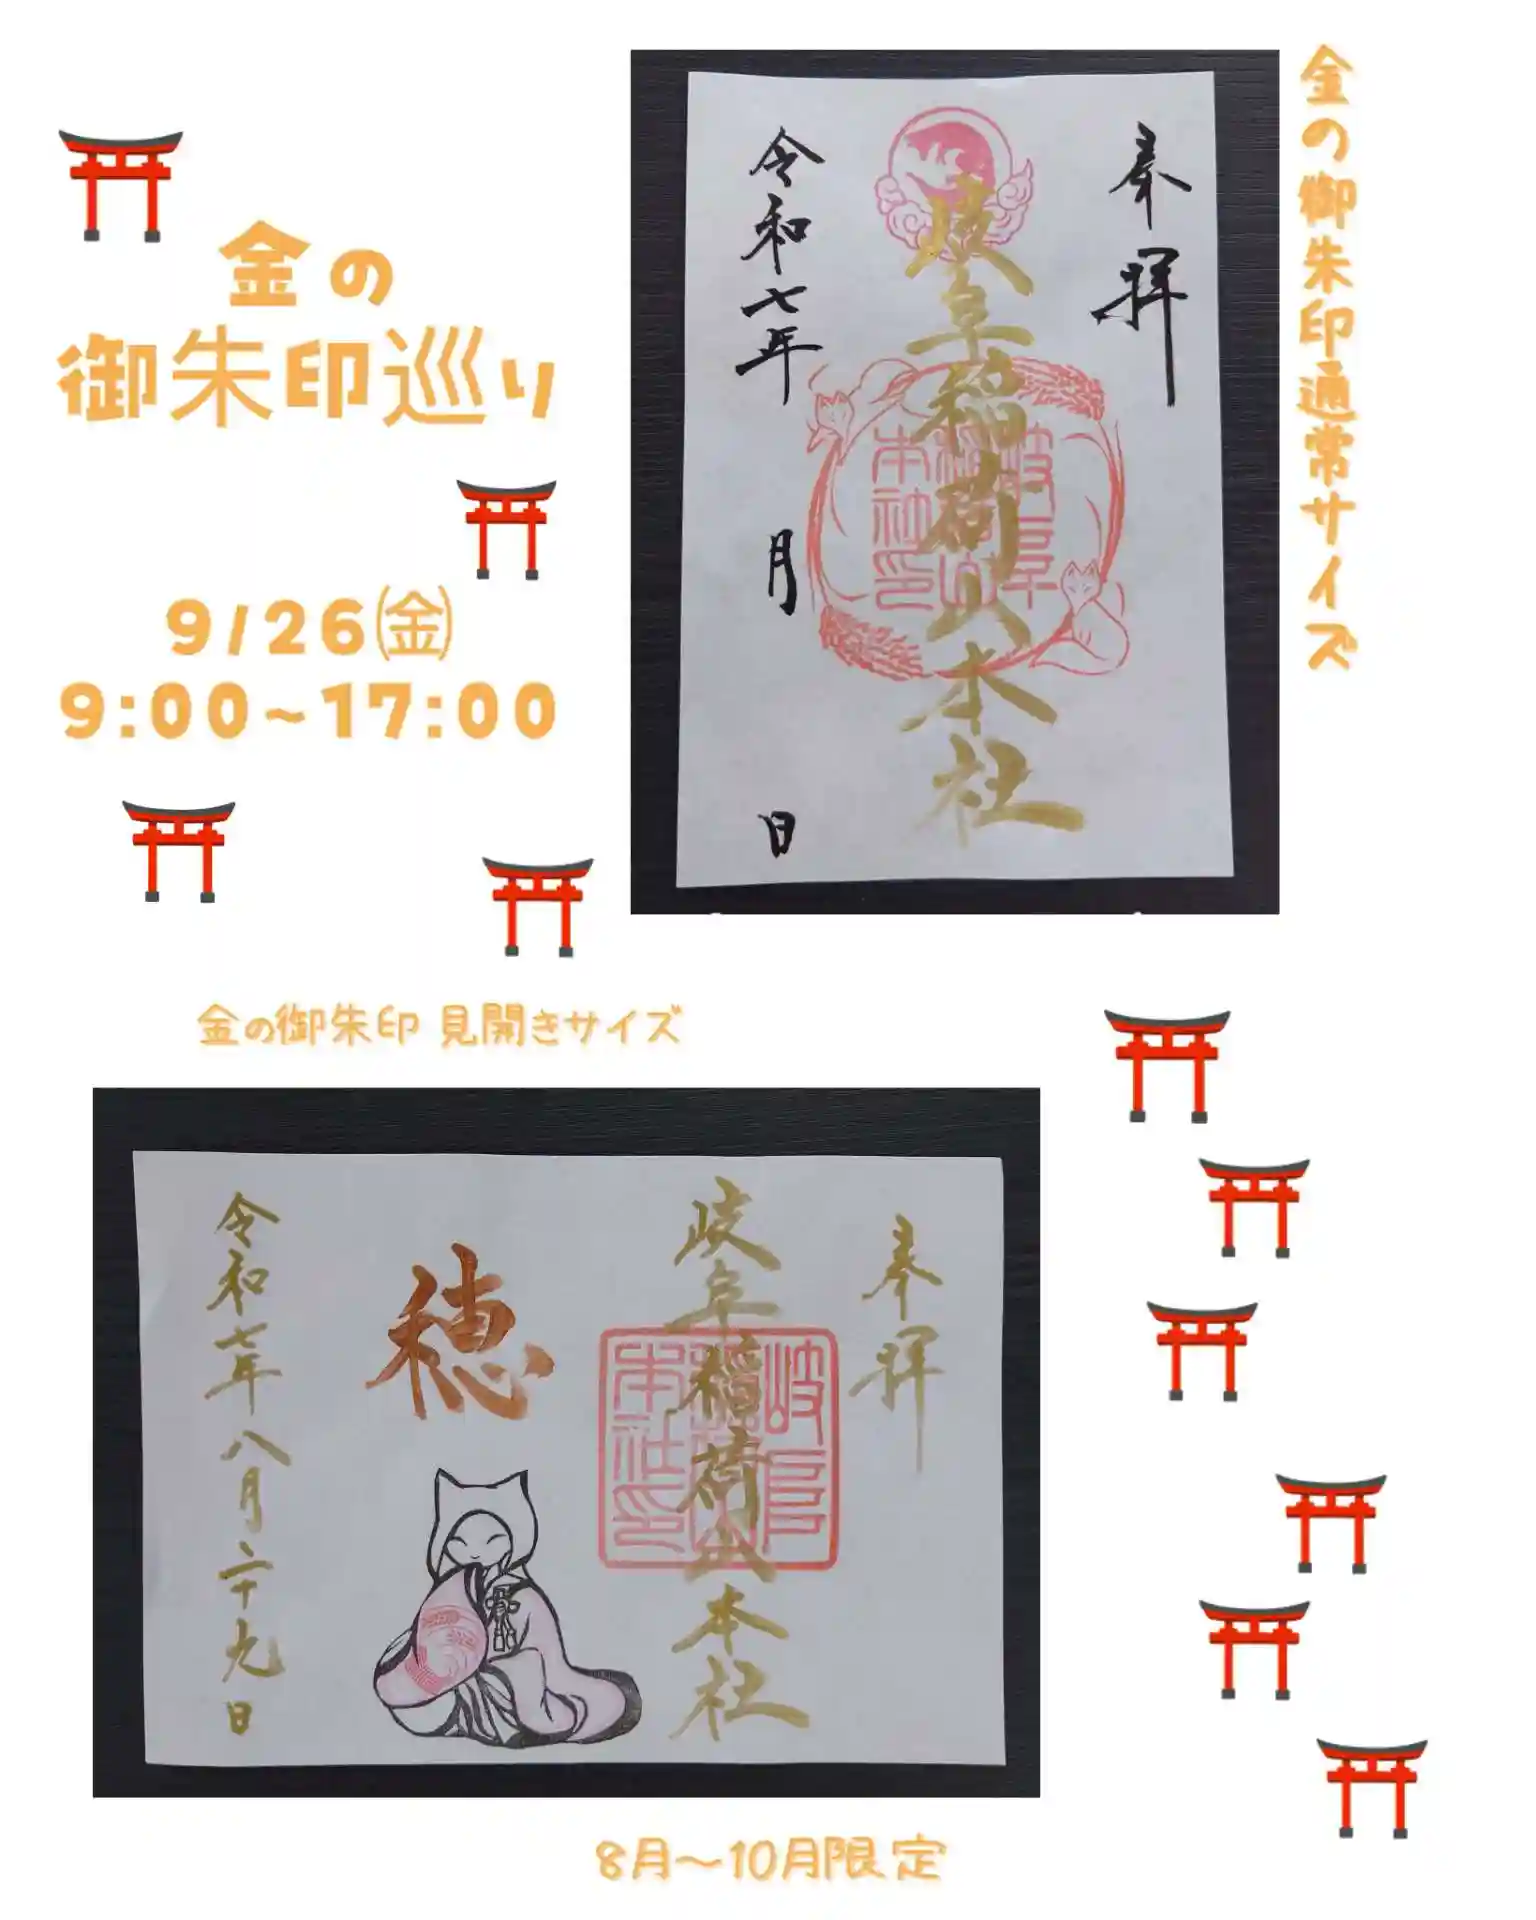 金の
御朱印巡り
9/26㈮
9:00~17:00
金の御朱印通常サイズ
奉拝
岐阜稲荷山本社
岐阜
稲荷山
本社印
令和七年 月 日
金の御朱印 見開きサイズ
奉拝
岐阜稲荷山本社
岐阜
稲荷山
本社印
穂
令和七年八月二十九日
8月～10月限定